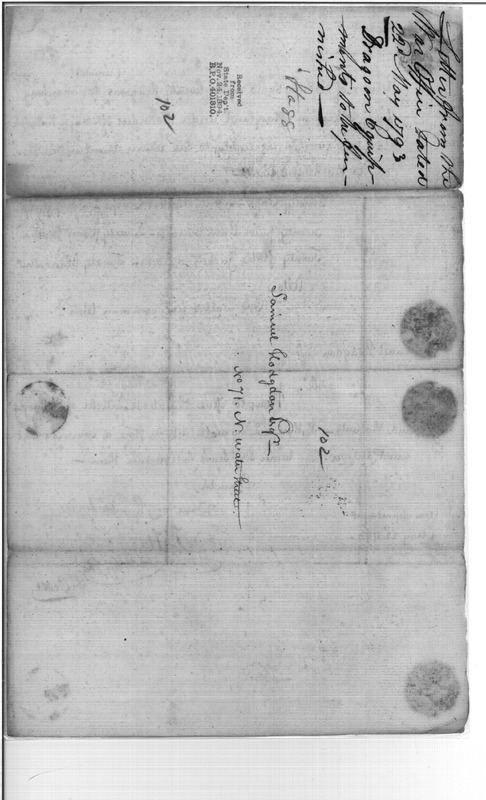 Letter from the
War Office Dated
22d May 1793
Dragoon Equip
ments to be fur-
nished
Stagg
Received
from
State Dep't
Nov. 24, 1894.
R.P.O. 401310.
102
Samuel Hodgdon Esqr
No 71. N. Water Street.
102